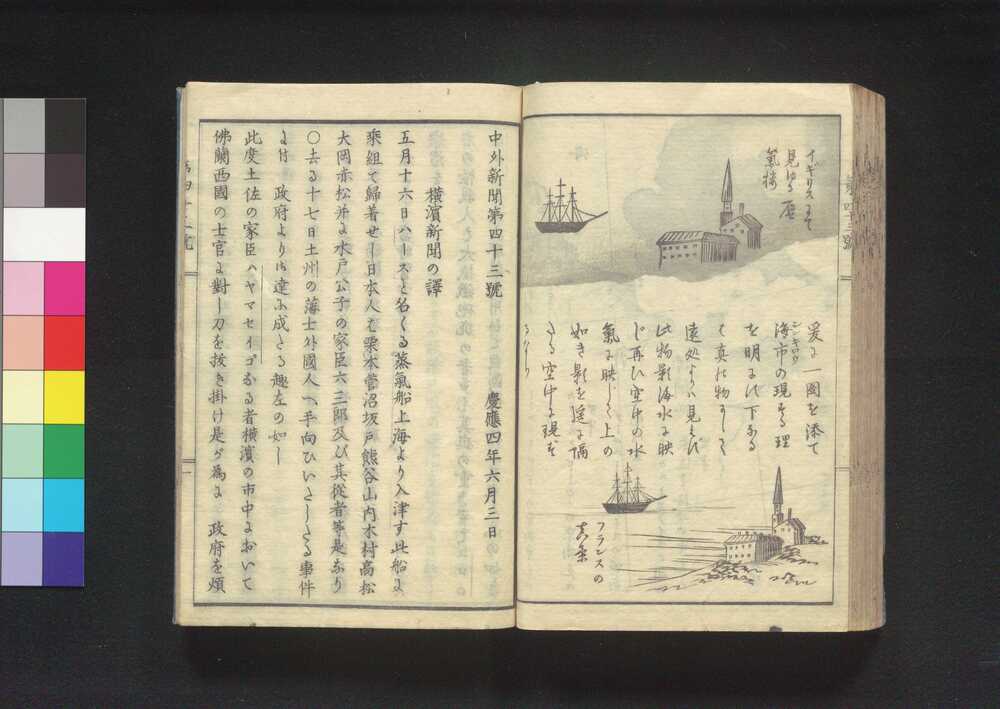 イギリスにて
見ゆる
蜃楼
爰に一圖を添て
海市の現する理
シンキロウ
を明にす下なる
は真の物にして
遠処より見えし
此物影海水に映
じ再び空中の水
氣に映じて上の
如き影を遥に隔
たる空中に現ず
るなり
フランスの
真景
中外新聞第四十三號 慶應四年六月三日
横濱新聞の譯
五月十六日ハースと名くる蒸氣船上海より入津す此船に
乗組て歸着せし日本人ハ栗本菅沼坂戸熊谷山内木村高松
大岡赤松并に水戸公子の家臣六三郎及び其從者等是なり
〇去る十七日土州の藩士外國人へ手向ひいたしたる事件
に付 政府より御達に成たる趣左の如し
此度土佐の家臣ハヤマセイゴなる者横濱の市中において
佛蘭西國の士官に對し刀を拔き掛け是が為に 政府を煩
第四十三號
一